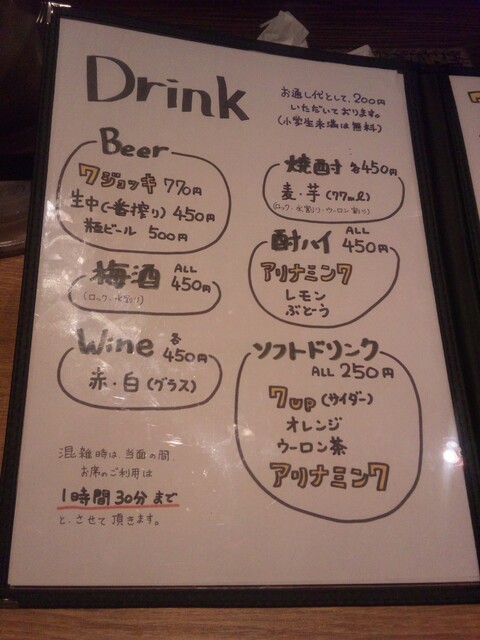 Drink
お通し代として、200円
いただいております。
(小学生未満は無料)
Beer
7ジョッキ 770円
生中(一番搾り) 450円
瓶ビール 500円
梅酒 ALL 450円
(ロック・水割り)
Wine 各 450円
赤・白(グラス)
焼酎 各450円
麦・芋(77ml)
(ロック・水割り・ウーロン割り)
酎ハイ ALL 450円
アリナミン7
レモン
ぶどう
ソフトドリンク
ALL 250円
7up(サイダー)
オレンジ
ウーロン茶
アリナミン7
混雑時は、当面の間、
お席のご利用は
1時間30分まで
と、させて頂きます。